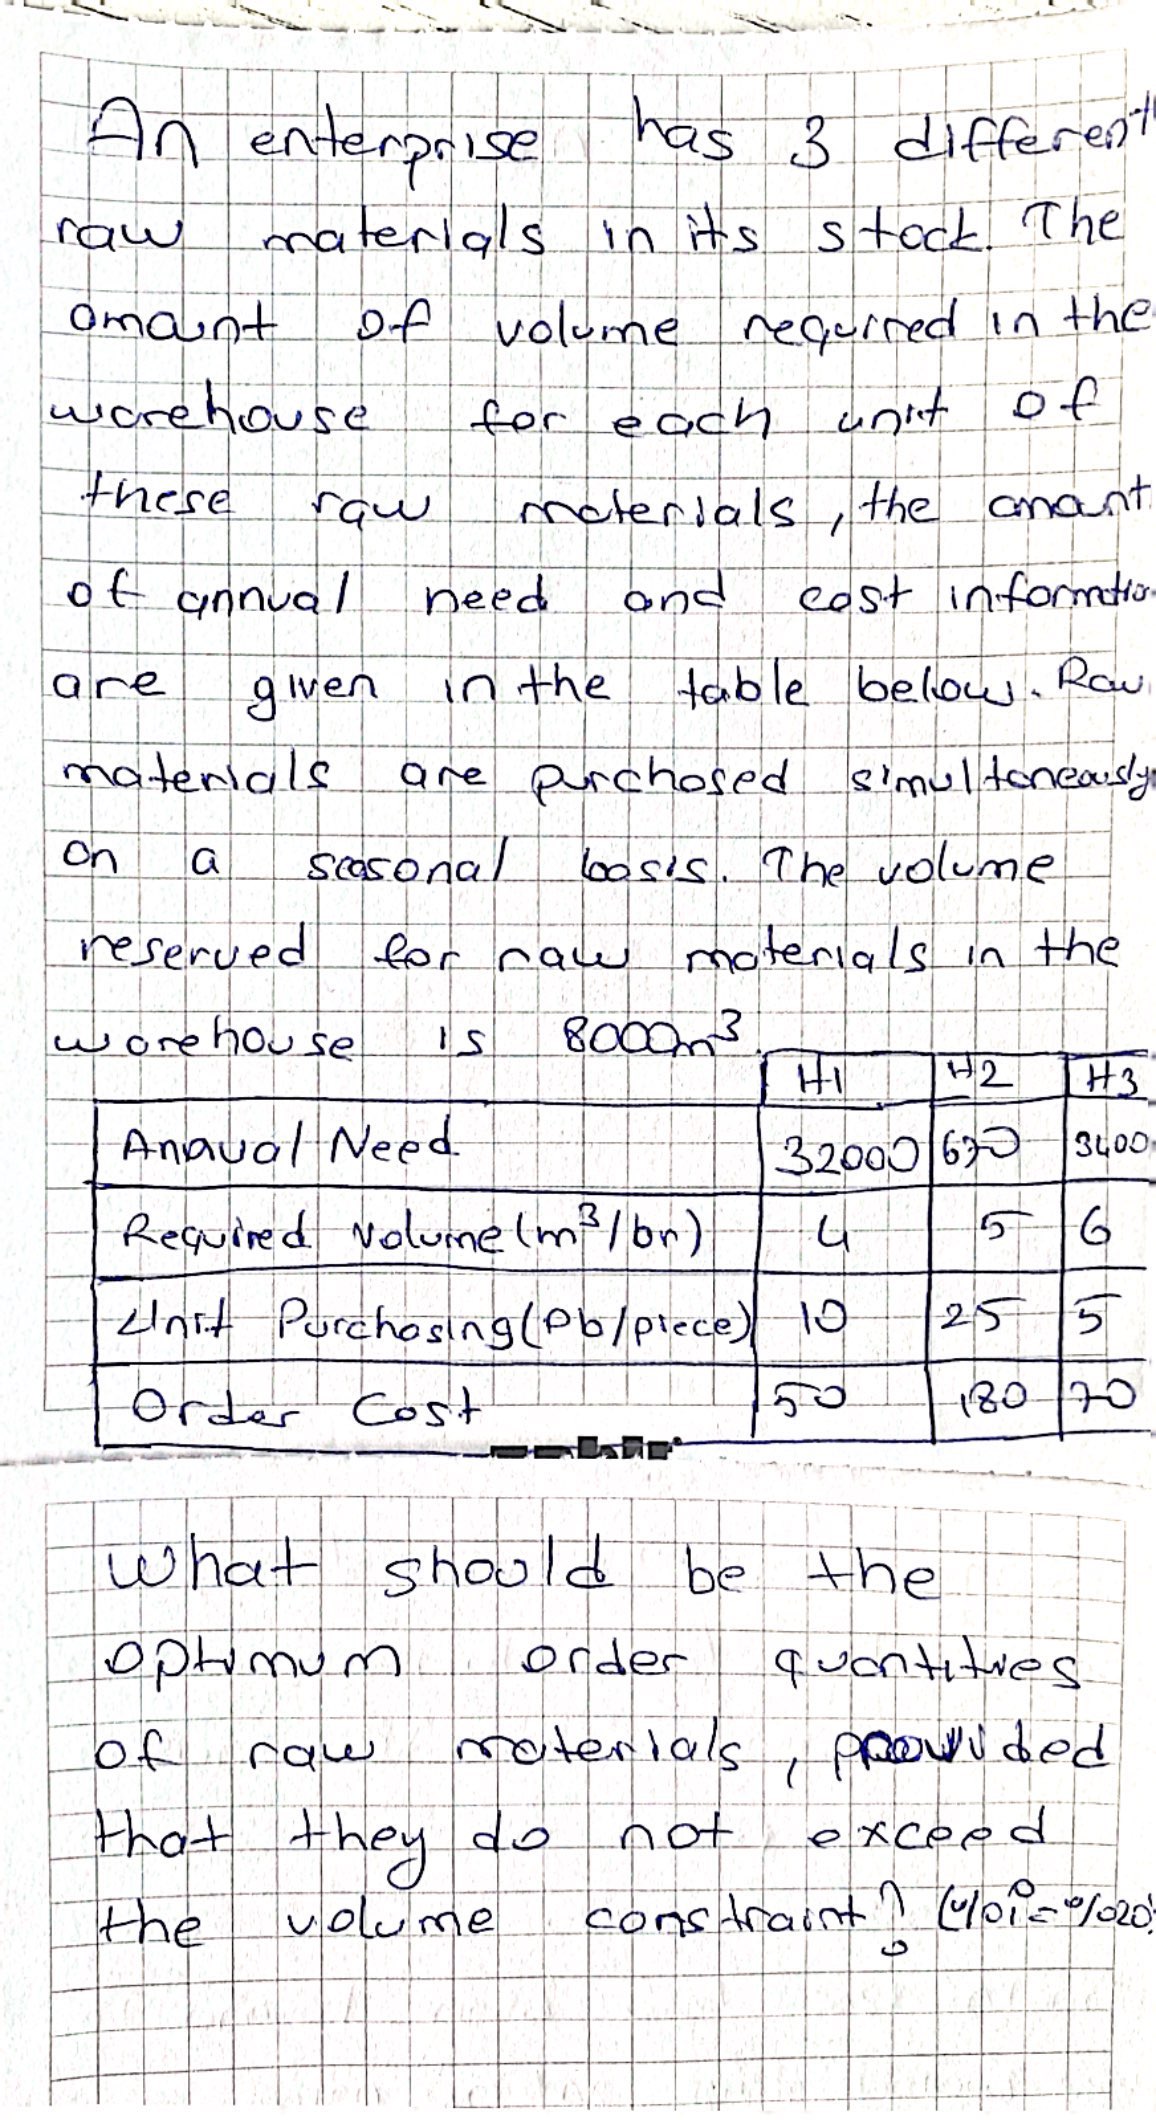 An enterprise has 3 different
raw materials in its stock. The
amount of volume required in the
warehouse for each unit of
these raw materials, the amount
of annual need and cost informatio
are given in the table below. Raw
materials are purchased simultaneously
on a seasonal basis. The volume
reserved for raw materials in the
warehouse is 8000m³.
H1 H2 H3
Annual Need 32000 670 3400
Required Volume (m³/br) 4 5 6
Unit Purchasing (Pb/piece) 10 25 5
Order Cost 50 180 70
What should be the
optimum order quantities
of raw materials, provided
that they do not exceed
the volume constraint? (%i=%20)